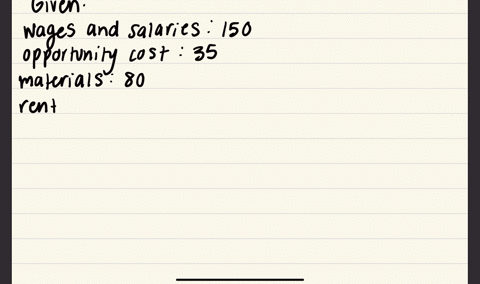 Given:
wages and salaries : 150
opportunity cost : 35
materials : 80
rent